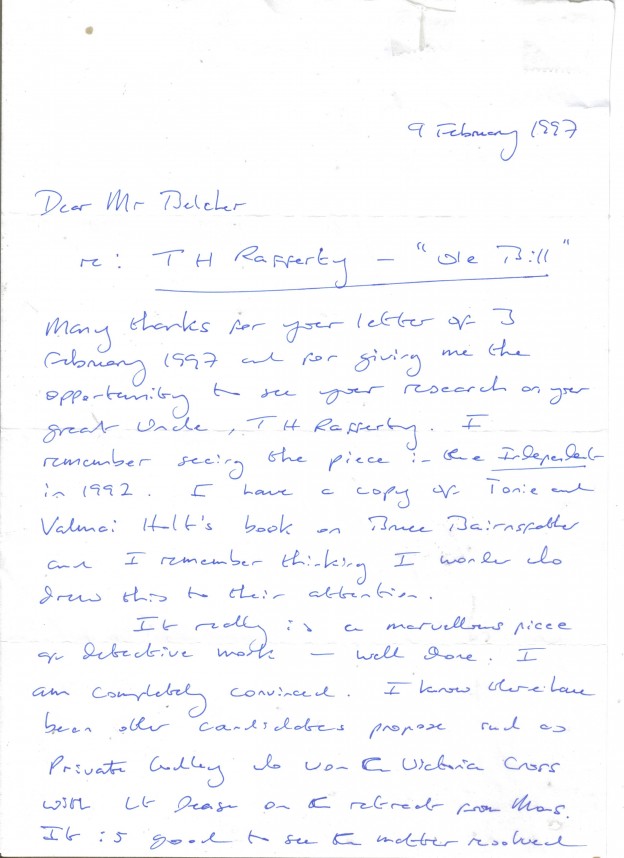 9 February 1997
Dear Mr Belcher
re: T H Rafferty – "Ole Bill"
Many thanks for your letter of 3
February 1997 and for giving me the
opportunity to see your research on your
great Uncle, T H Rafferty. I
remember seeing the piece in the Independent
in 1992. I have a copy of Tonie and
Valmai Holt's book on Bruce Bairnsfather
and I remember thinking I would
draw this to their attention.
It really is a marvellous piece
of detective work – well done. I
am completely convinced. I know there have
been other candidates propose such as
Private Godley who won the Victoria Cross
with Lt Dease on the retreat from Mons.
It is good to see the matter resolved